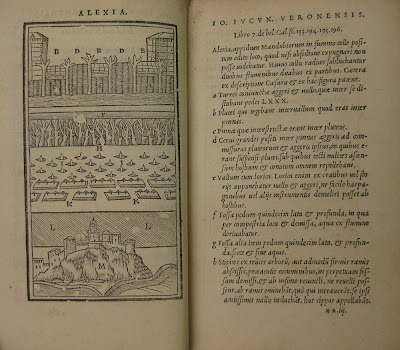 ALEXIA.
B D B D B
F
H
K
L L
M
IO. IVCVN. VERONENSIS.
Libro 7. de bel. Gal. fo. 193. 194. 195. 196.
Alexia, oppidum Mandubiorum in summo colle positum
edito loco, quod nisi obsidione expugnari non
posse uidebatur. Huius collis radices subluebantur
duobus fluminibus duabus ex partibus. Cætera
ex descriptione Cæsaris & ex hac figura patent.
a Turres circumactæ aggeri & uallo, quæ inter se distabant
pedes LXXX.
b Plutei qui tegebant interuallum quod erat inter
pinnas.
c Pinnæ quæ interstructæ erant inter pluteos.
d Cerui grandes positi inter pinnas aggeris ad commissuras
pluteorum & aggeris ipsius, in quibus erant
suspensi plutei, sub quibus tecti milites ascensum
hostium & conatum omnem repellebant.
e Vallum cum lorica. Lorica enim ex cratibus uel storijs
apponebatur uallo & aggeri, ne facile harpagonibus
uel alijs instrumentis demoliri posset ab
hostibus.
f Fossa pedum quindecim lata & profunda, in qua
per campestria loca & demissa, aqua ex flumine
deriuabatur.
g Fossa alia item pedum quindecim lata, & profunda,
sicca & sine aquis.
h Stipites ex truncis arborum, aut admodum firmis ramis
abscissis, præacutis cacuminibus, in perpetuam fossam
demissi, & ab infimo reuincti, ne reuelli possent,
ab ramis eminebant, quò qui intrauerāt, se ipsi
acutissimis uallis induebāt. hos cippos appellabāt.
** iij